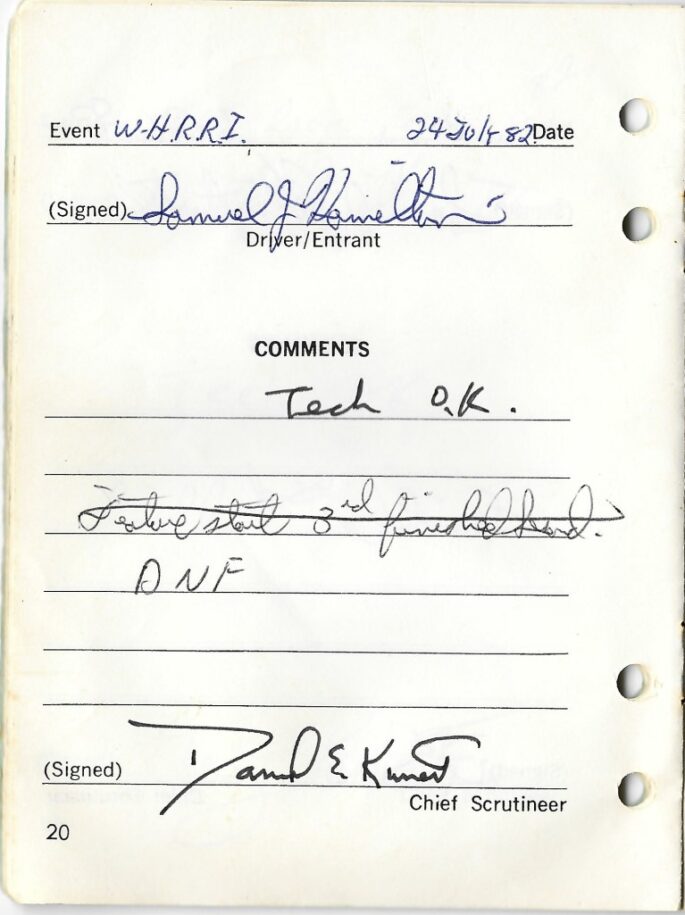 Event W-H.R.R.I. 24 July 82 Date
(Signed) Samuel J Hamilton
Driver/Entrant
COMMENTS
Tech O.K.
Feature start 3rd finished
DNF
(Signed) David E
Chief Scrutineer
20